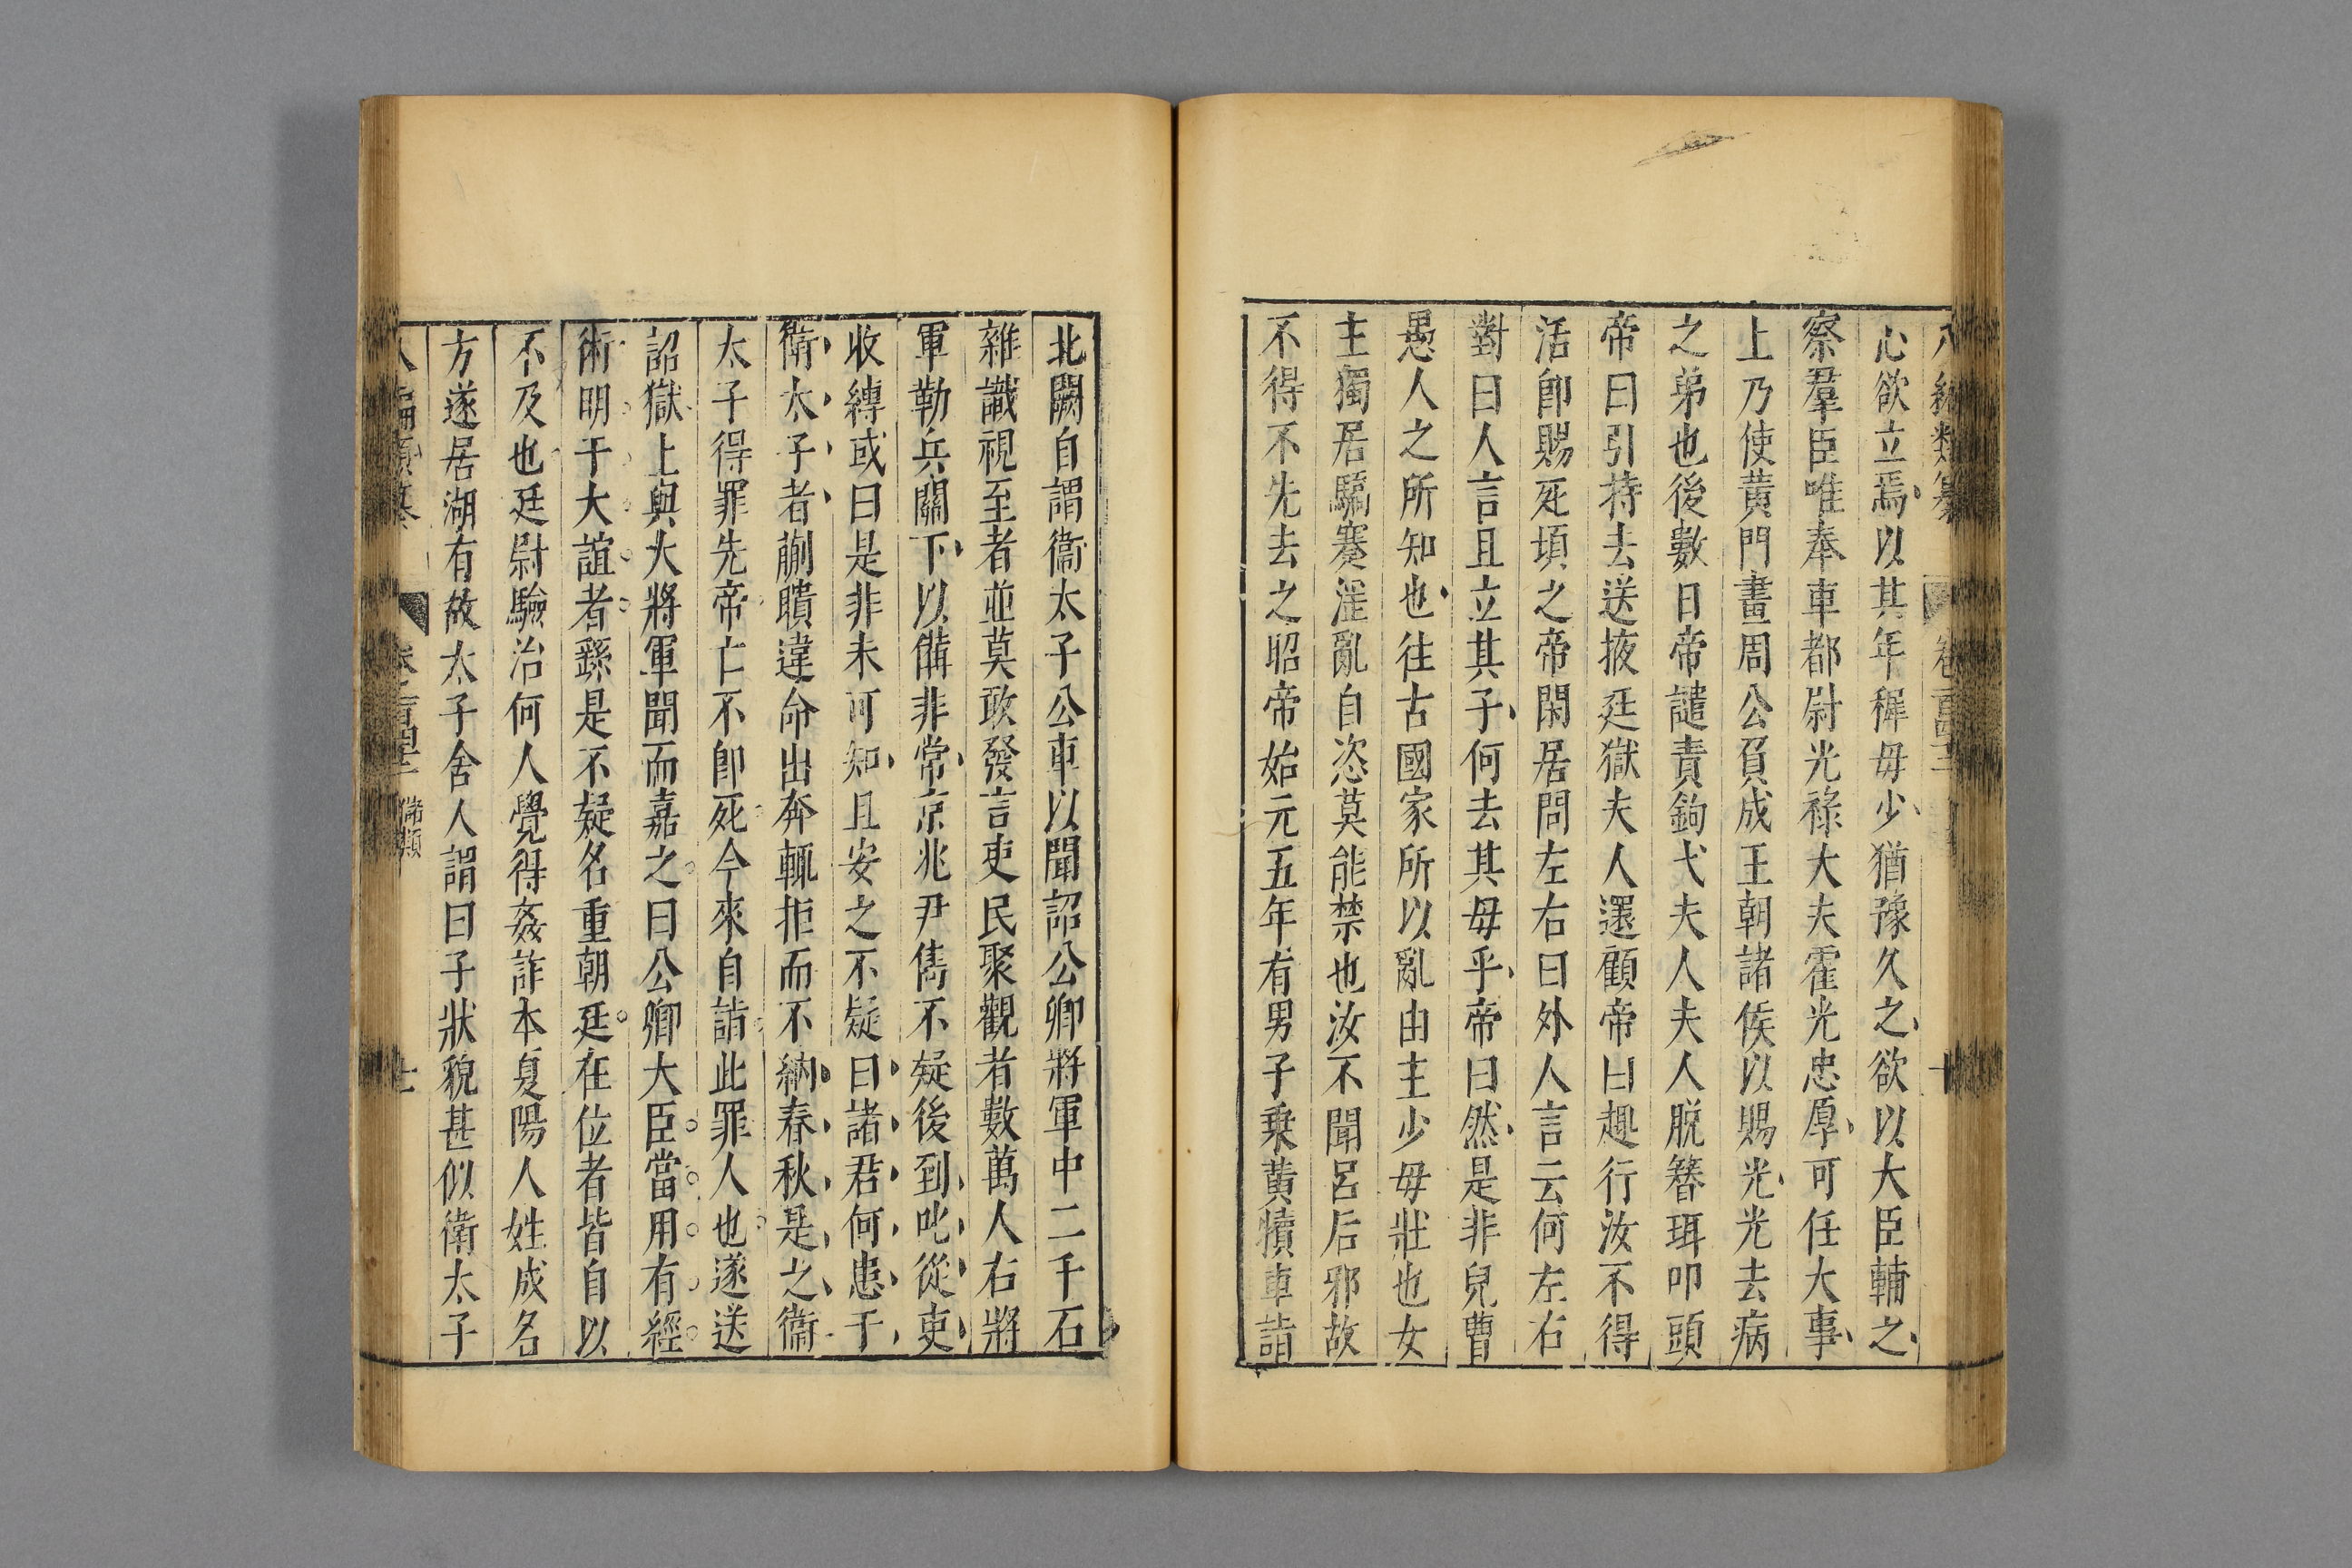 八編類纂 卷一百四十三 十
心欲立焉以其年穉毋少猶豫久之欲以大臣輔之
察羣臣唯奉車都尉光祿大夫霍光忠厚可任大事
上乃使黃門畫周公負成王朝諸侯以賜光光去病
之弟也後數日帝譴責鉤弋夫人夫人脫簪珥叩頭
帝曰引持去送掖廷獄夫人還顧帝曰趣行汝不得
活卽賜死頃之帝閑居問左右曰外人言云何左右
對曰人言且立其子何去其毋乎帝曰然是非兒曹
愚人之所知也往古國家所以亂由主少毋壯也女
主獨居驕蹇淫亂自恣莫能禁也汝不聞呂后邪故
不得不先去之昭帝始元五年有男子乗黃犢車詣
北闕自謂衞太子公車以聞詔公卿將軍中二千石
雜識視至者並莫敢發言吏民聚觀者數萬人右將
軍勒兵闕下以備非常京兆尹雋不疑後到叱從吏
收縛或曰是非未可知且安之不疑曰諸君何患于
衛太子者蒯聵違命出奔輒拒而不納春秋是之衞
太子得罪先帝亡不卽死今來自詣此罪人也遂送
詔獄上與大將軍聞而嘉之曰公卿大臣當用有經
術明于大誼者繇是不疑名重朝廷在位者皆自以
不及也廷尉驗治何人覺得姦詐本夏陽人姓成名
方遂居湖有故太子舍人謂曰子狀貌甚似衛太子
八編類纂 卷一百四十三 儲類 十一